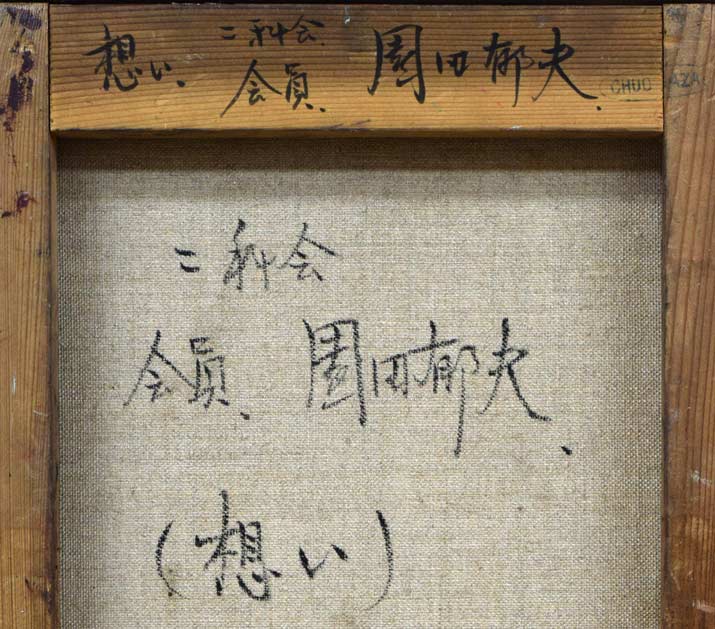 想い、二科会会員、園田郁夫、
CHUO
AZA
二科会
会員、園田郁夫、
(想い)